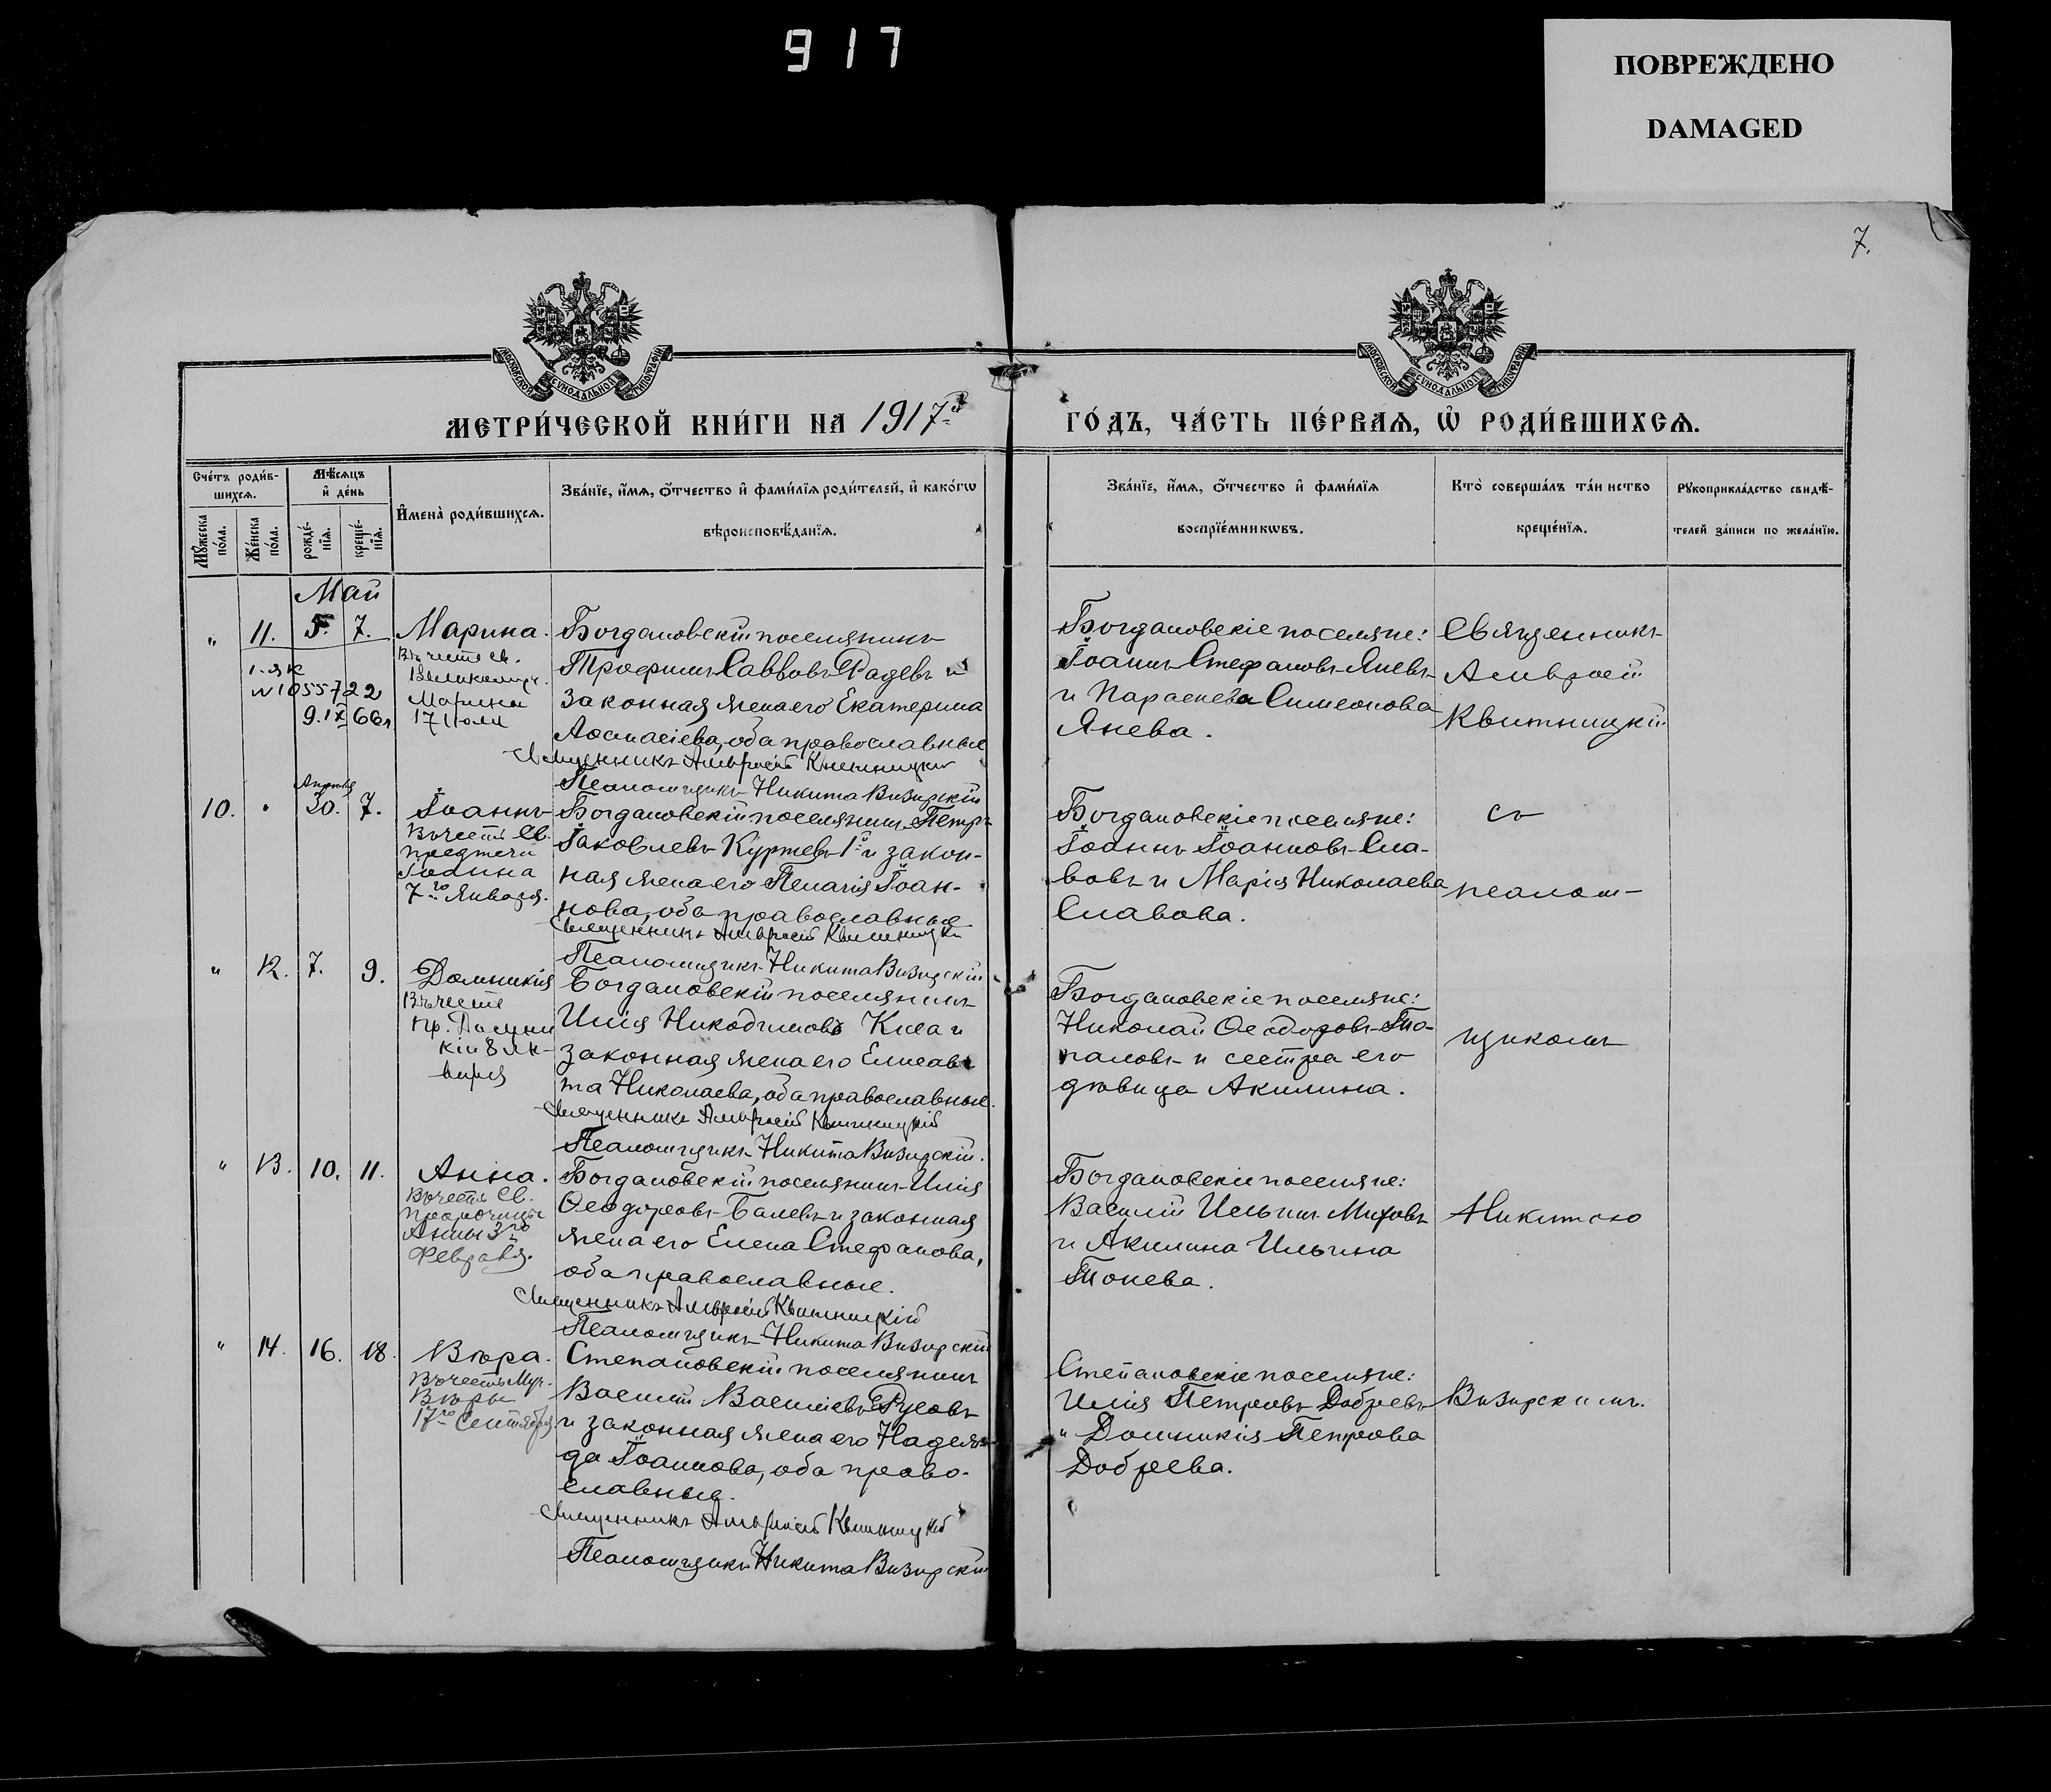 917
ПОВРЕЖДЕНО
DAMAGED
7.
МОСКОВСКОЙ СѴНОДАЛЬНОЙ ТИПОГРАФІИ
МОСКОВСКОЙ СѴНОДАЛЬНОЙ ТИПОГРАФІИ
МЕТРИ́ЧЕСКОЙ КНИ́ГИ НА 1917й ГО́ДЪ, ЧА́СТЬ ПЕ́РВАѦ, Ѡ҆ РОДИ́ВШИХСѦ.
Сче́тъ роди́в-
шихсѧ.
Мѣ́сѧцъ
и҆ де́нь
Му́жеска по́ла.
Же́нска по́ла.
рожде́-
нїѧ.
креще́-
нїѧ.
И҆мена̀ роди́вшихсѧ.
Зва́нїе, и҆́мѧ, ѻ҆́тчество и҆ фами́лїѧ роди́телей, и҆ како́гѡ
вѣроисповѣ́данїѧ.
Зва́нїе, и҆́мѧ, ѻ҆́тчество и҆ фами́лїѧ
воспрїе́мникѡвъ.
Кто̀ соверша́лъ та́инство
креще́нїѧ.
Рꙋкоприкла́дство свидѣ́-
телей за́писи по жела́нїю.
Май
" 11. 5. 7. Марина.
Въ честь св.
Великомуч.
Марины
17 Июля
N 1055722
9.IX 66
Богдановскій поселянинъ
Трофимъ Саввовъ Радевъ и
законная жена его Екатерина
Аѳанасіева, оба православные
Священникъ Амвросій Квитницкій
Псаломщикъ Никита Визирскій
Богдановскіе поселяне:
Іоаннъ Стефановъ Яневъ
и Параскева Симеонова
Янева.
Священникъ
Амвросій
Квитницкій
Апрѣля
10. " 30. 7. Іоаннъ
Въ честь Св.
Предтечи
Іоанна
7го Января.
Богдановскій поселянинъ Петръ
Іаковлевъ Куртевъ 1й и закон-
ная жена его Пелагія Іоан-
нова, оба православные
Священникъ Амвросій Квитницкій
Псаломщикъ Никита Визирскій
Богдановскіе поселяне:
Іоаннъ Іоанновъ Сла-
вовъ и Марія Николаева
Славова.
съ
псалом-
" 12. 7. 9. Домникія
Въ честь
пр. Домни
кіи 8 Ян-
варя
Богдановскій поселянинъ
Илія Никодимовъ Киса и
законная жена его Елисаве
та Николаева, оба православные.
Священникъ Амвросій Квитницкій
Псаломщикъ Никита Визирскій.
Богдановскіе поселяне:
Николай Ѳеодоровъ То-
паловъ и сестра его
дѣвица Акилина.
щикомъ
" 13. 10. 11. Анна.
Въ честь Св.
Пророчицы
Анны 3го
Февраля.
Богдановскій поселянинъ Илія
Ѳеодоровъ Балевъ и законная
жена его Елена Стефанова,
оба православные.
Священникъ Амвросій Квитницкій
Псаломщикъ Никита Визирскій
Богдановскіе поселяне:
Василій Ильинъ Миховъ
и Акилина Ильина
Тонева.
Никитою
" 14. 16. 18. Вѣра.
Въ честь Муч.
Вѣры
17го Сентября
Степановскій поселянинъ
Василій Василіевъ Русовъ
и законная жена его Надеж
да Іоаннова, оба право-
славные.
Священникъ Амвросій Квитницкій
Псаломщикъ Никита Визирскій
Степановскіе поселяне:
Илія Петровъ Добревъ
и Домникія Петрова
Добрева.
Визирскимъ.